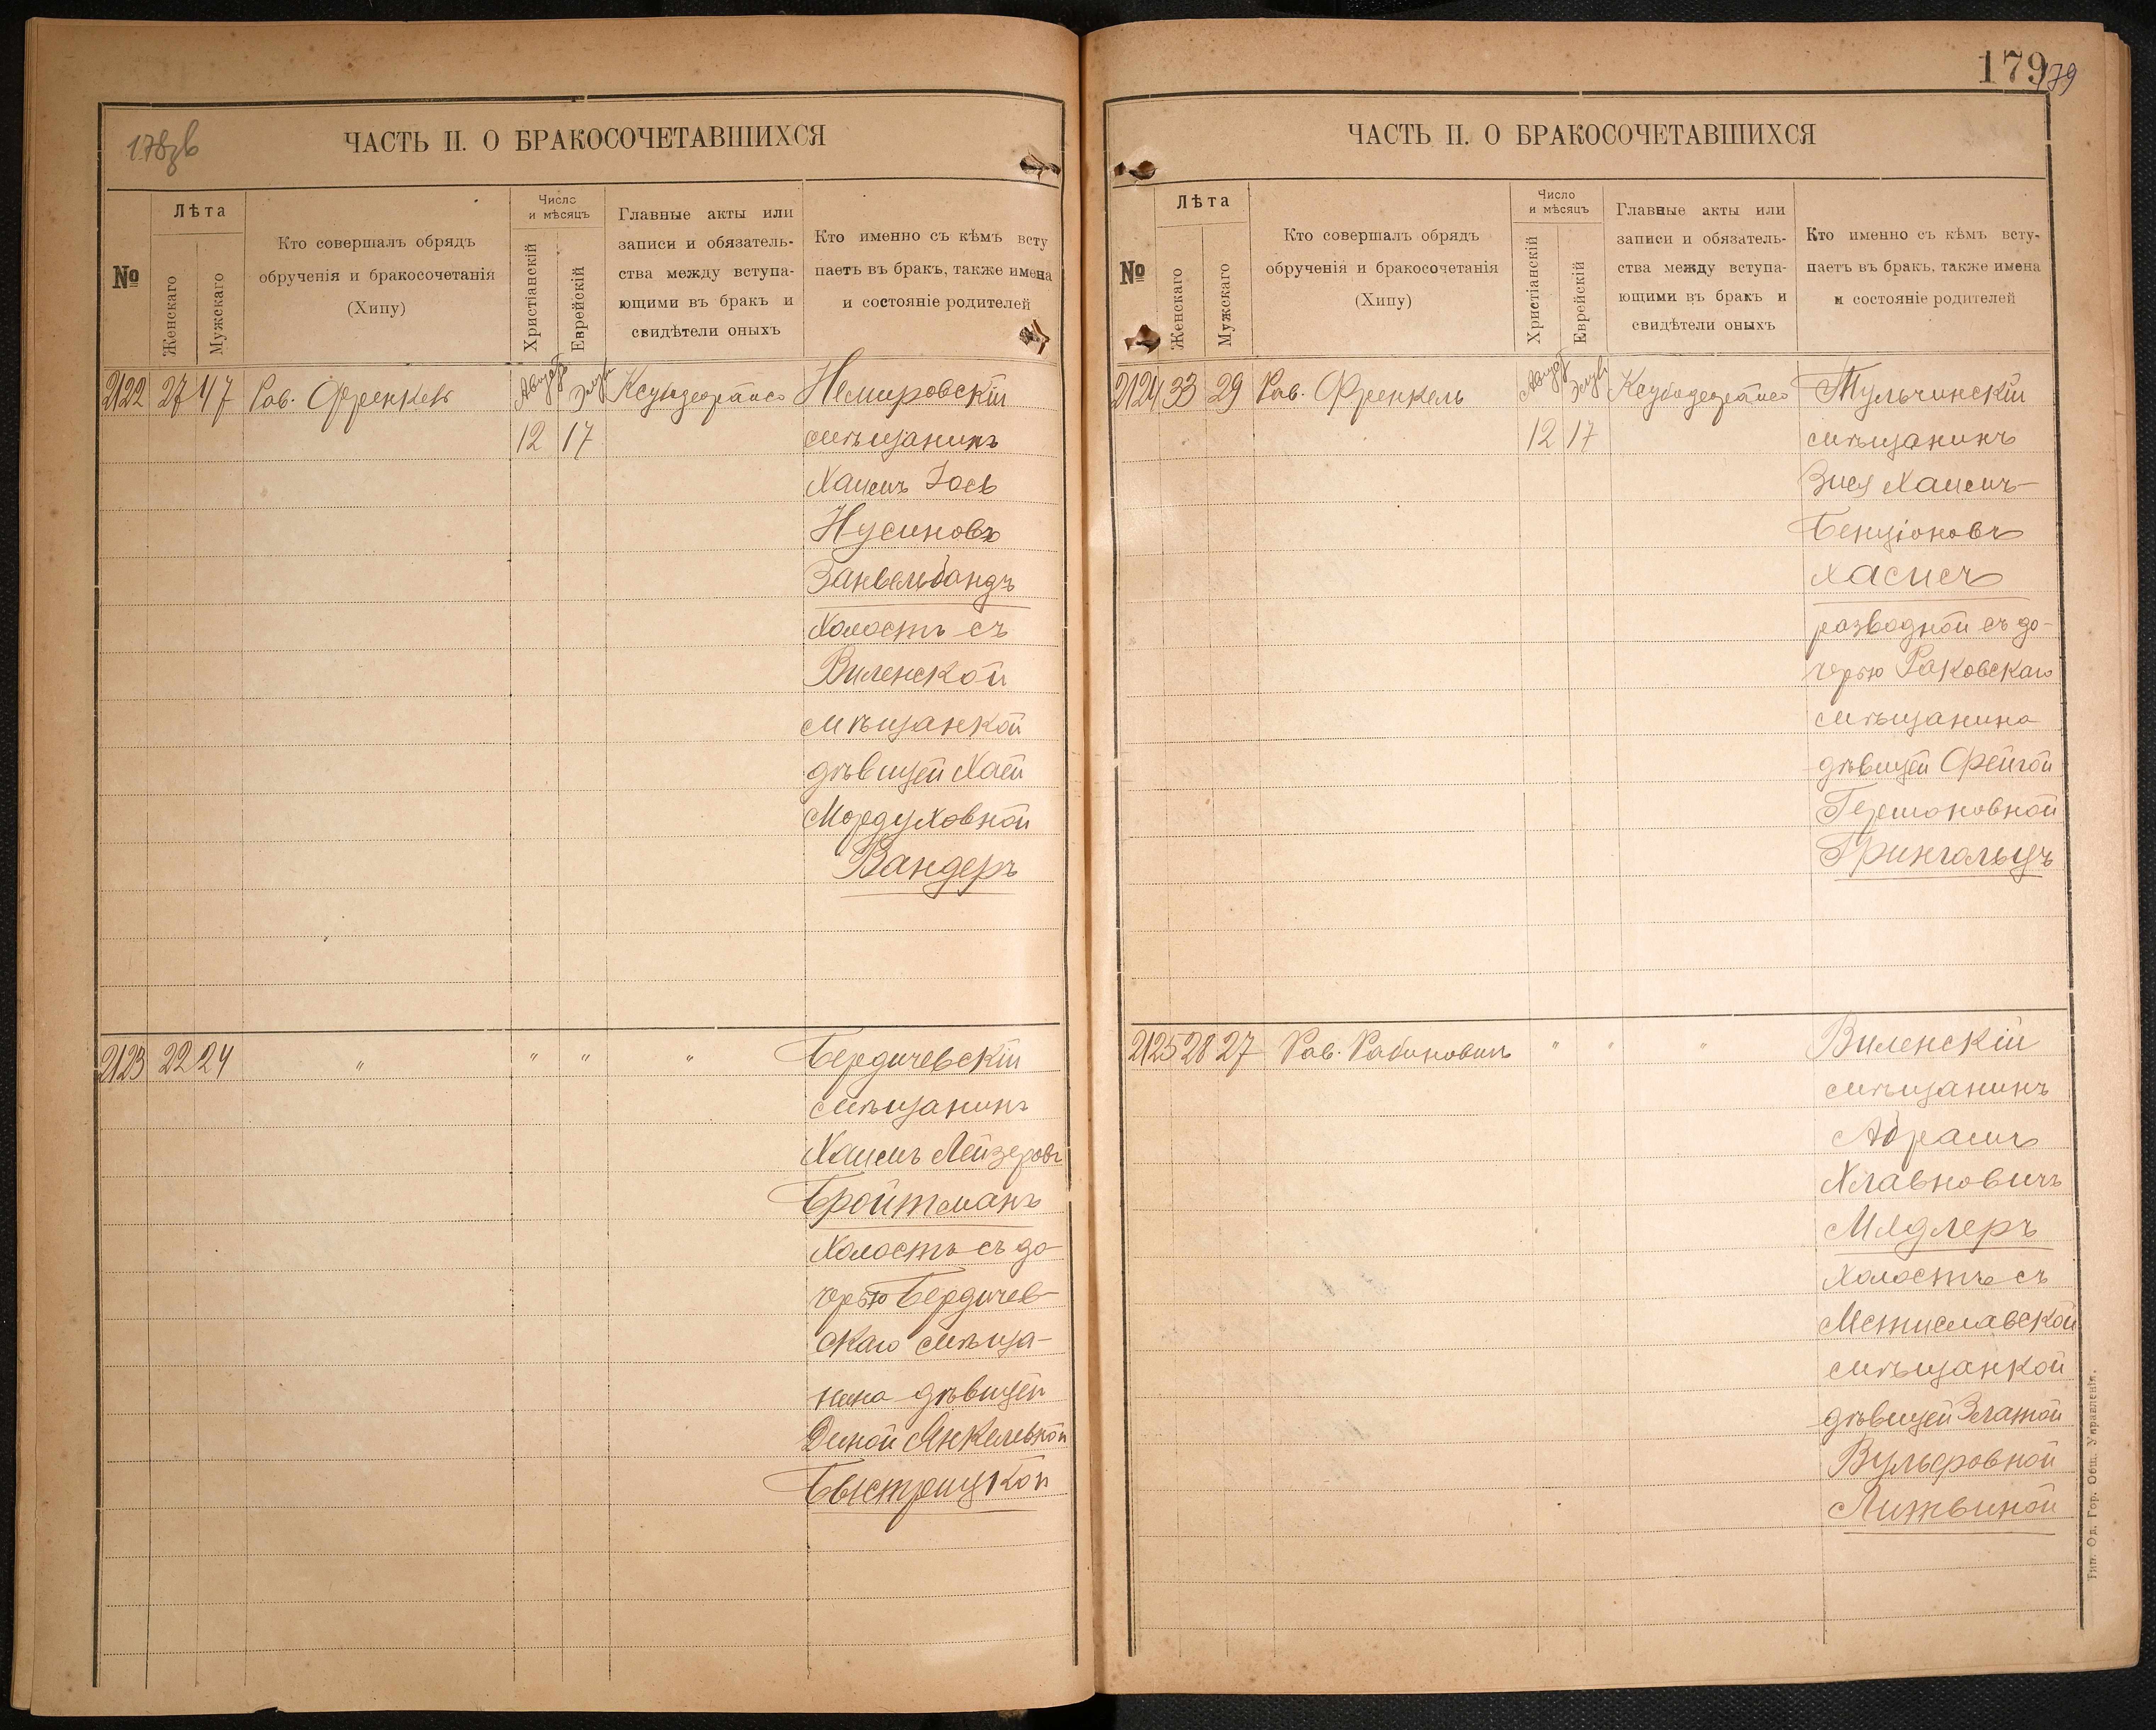 178 об
ЧАСТЬ II. О БРАКОСОЧЕТАВШИХСЯ
№
Лѣта
Женскаго
Мужскаго
Кто совершалъ обрядъ
обрученія и бракосочетанія
(Хипу)
Число
и мѣсяцъ
Христіанскій
Еврейскій
Главные акты или
записи и обязатель-
ства между вступа-
ющими въ бракъ и
свидѣтели оныхъ
Кто именно съ кѣмъ всту
паетъ въ бракъ, также имена
и состояніе родителей
2122 27 47 Рав. Френкель Август Элул Немировскій
12 17 мѣщанинъ
Хаимъ Іось
Нусиновъ
Занвельбандъ
холостъ съ
Виленской
мѣщанкой
дѣвицей Хаей
Мордуховной
Вандеръ
2123 22 24 " " " " Бердичевскій
мѣщанинъ
Хаимъ Лейзеровъ
Бройтманъ
холостъ съ до-
черью Бердичев-
скаго мѣща-
нина дѣвицей
Диной Янкелевной
Быстрицкой
179
179
ЧАСТЬ II. О БРАКОСОЧЕТАВШИХСЯ
№
Лѣта
Женскаго
Мужскаго
Кто совершалъ обрядъ
обрученія и бракосочетанія
(Хипу)
Число
и мѣсяцъ
Христіанскій
Еврейскій
Главные акты или
записи и обязатель-
ства между вступа-
ющими въ бракъ и
свидѣтели оныхъ
Кто именно съ кѣмъ всту-
паетъ въ бракъ, также имена
и состояніе родителей
2124 33 29 Рав. Френкель Август Элул Тульчинскій
12 17 мѣщанинъ
Зися Хаимъ-
Бенціоновъ
Хасисъ
разводной съ до-
черью Раковскаго
мѣщанина
дѣвицей Фейгой
Гершоновной
Грингольцъ
2125 28 27 Рав. Рабиновичъ " " " Виленскій
мѣщанинъ
Абрамъ
Хлавновичъ
Мядлеръ
холостъ съ
Мстиславской
мѣщанкой
дѣвицей Златой
Вульфовной
Литвиной
Тип. Од. Гор. Общ. Управленія.